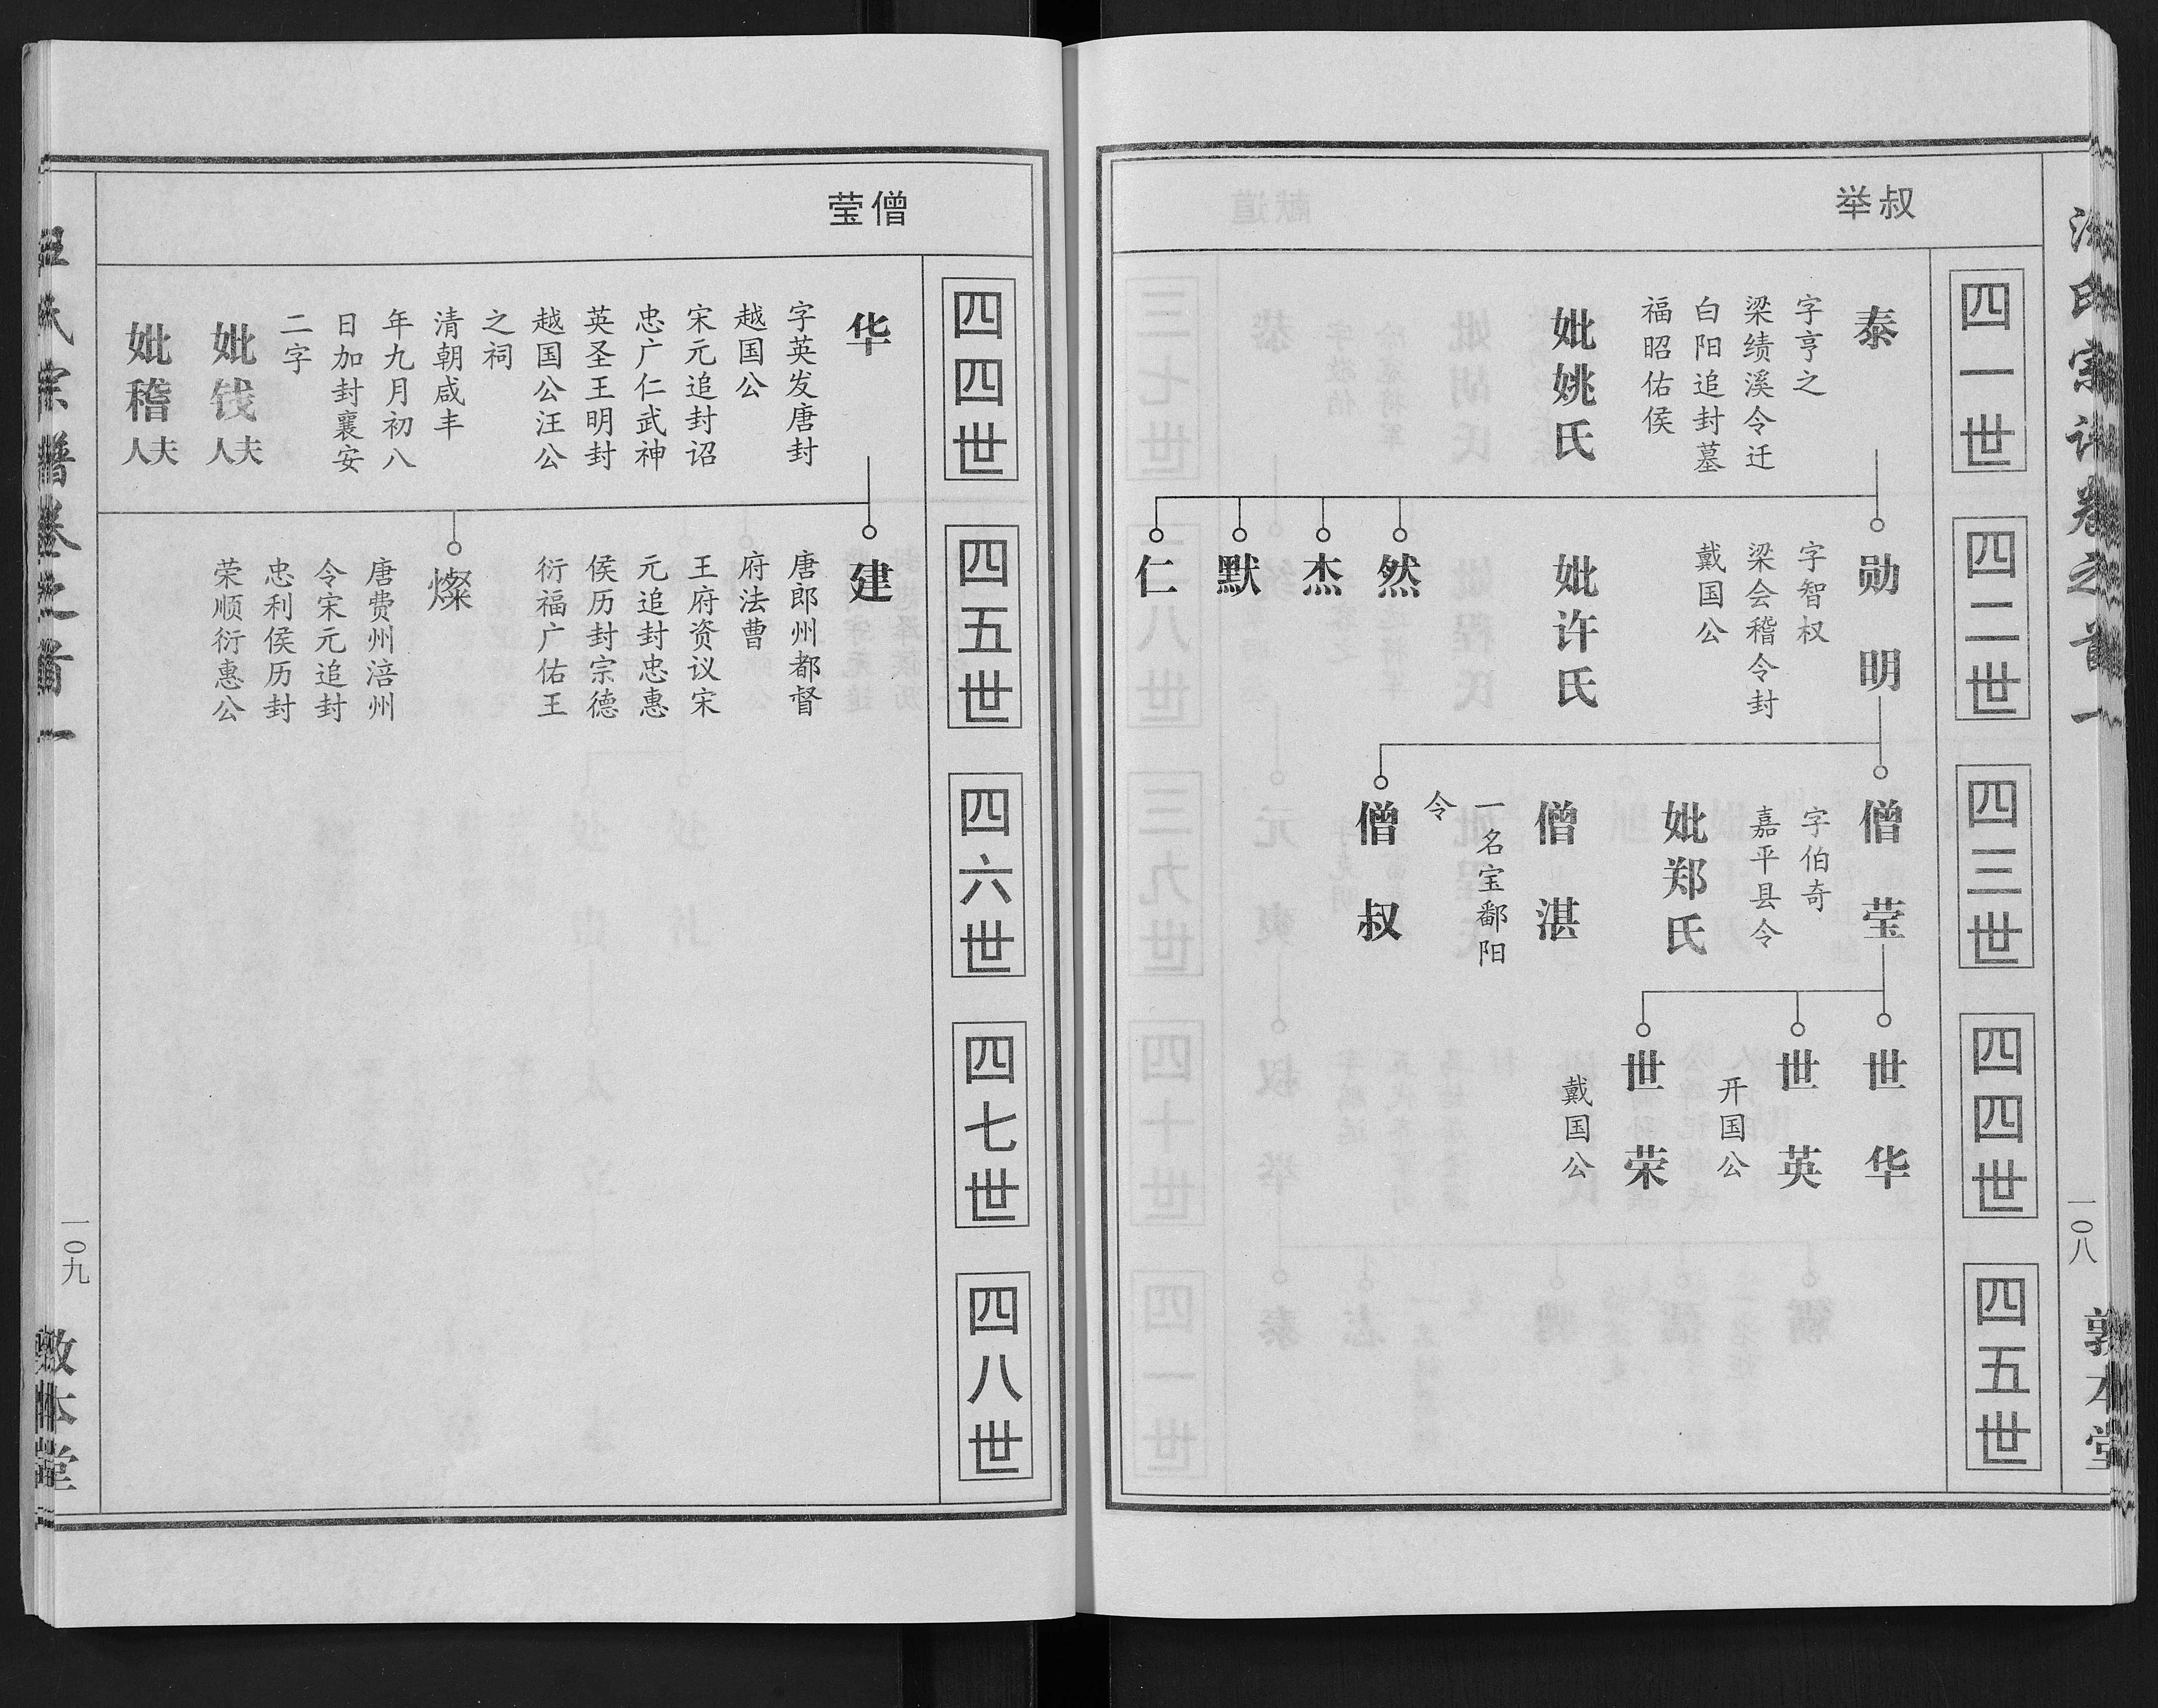 汪氏宗谱卷之首一
一〇八
敦本堂
叔举
四一世
四二世
四三世
四四世
四五世
泰
字亨之
梁绩溪令迁
白阳追封墓
福昭佑侯
妣姚氏
勋明
字智权
梁会稽令封
戴国公
妣许氏
然
杰
默
仁
僧莹
字伯奇
嘉平县令
妣郑氏
僧湛
一名宝鄱阳
令
僧叔
世华
世英
开国公
世荣
戴国公
僧莹
四四世
四五世
四六世
四七世
四八世
华
字英发唐封
越国公
宋元追封诏
忠广仁武神
英圣王明封
越国公汪公
之祠
清朝咸丰
年九月初八
日加封襄安
二字
妣钱夫人
妣稽夫人
建
唐郎州都督
府法曹
王府资议宋
元追封忠惠
侯历封宗德
衍福广佑王
燦
唐费州涪州
令宋元追封
忠利侯历封
荣顺衍惠公
汪氏宗谱卷之首一
一〇九
敦本堂